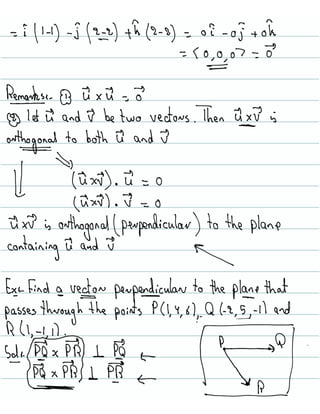 = î (1-1) - ĵ (2-2) + k̂ (2-2) = 0î - 0ĵ + 0k̂
= <0,0,0> = 0⃗
Remarks:- ① u⃗ x u⃗ = 0⃗
② let u⃗ and v⃗ be two vectors. Then u⃗xv⃗ is
orthogonal to both u⃗ and v⃗
(u⃗xv⃗) . u⃗ = 0
(u⃗xv⃗) . v⃗ = 0
u⃗xv⃗ is orthogonal (perpendicular) to the plane
containing u⃗ and v⃗
Ex:- Find a vector perpendicular to the plane that
passes through the points P(1,4,6), Q(-2,5,-1) and
R(1,-1,1).
Sol:- (PQ⃗ x PR⃗) ⊥ PQ⃗
(PQ⃗ x PR⃗) ⊥ PR⃗
P Q
R